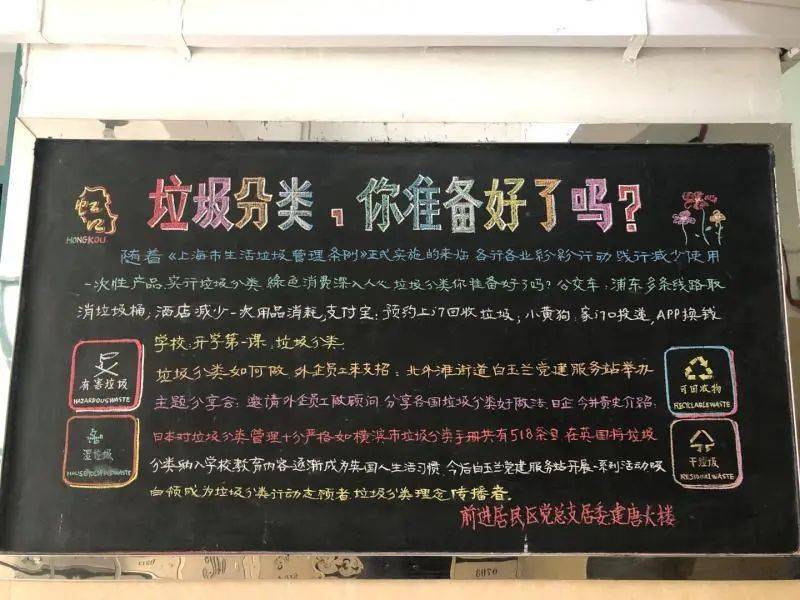 虹口
HONGKOU
垃圾分类,你准备好了吗?
随着《上海市生活垃圾管理条例》正式实施的来临 各行各业纷纷行动 践行减少使用
一次性产品,实行垃圾分类.绿色消费深入人心 垃圾分类你准备好了吗?公交车:浦东多条线路取
消垃圾桶;酒店减少一次用品消耗,支付宝:预约上门回收垃圾;小黄狗:家门口投递,APP换钱
学校:开学第一课,垃圾分类.
垃圾分类如何做 外企员工来支招:北外滩街道白玉兰党建服务站举办
主题分享会:邀请外企员工做顾问 分享各国垃圾分类好做法,日企 今井贵史介绍:
日本对垃圾分类管理十分严格如横滨市垃圾分类手册共有518条目,在英国将垃圾
分类纳入学校教育内容逐渐成为英国人生活习惯 今后白玉兰党建服务站开展一系列活动吸
白领成为垃圾分类行动志愿者,垃圾分类理念传播者.
前进居民区党总支居委建唐大楼
有害垃圾
HAZARDOUS WASTE
湿垃圾
HOUSEHOLD FOOD WASTE
可回收物
RECYCLABLE WASTE
干垃圾
RESIDUAL WASTE